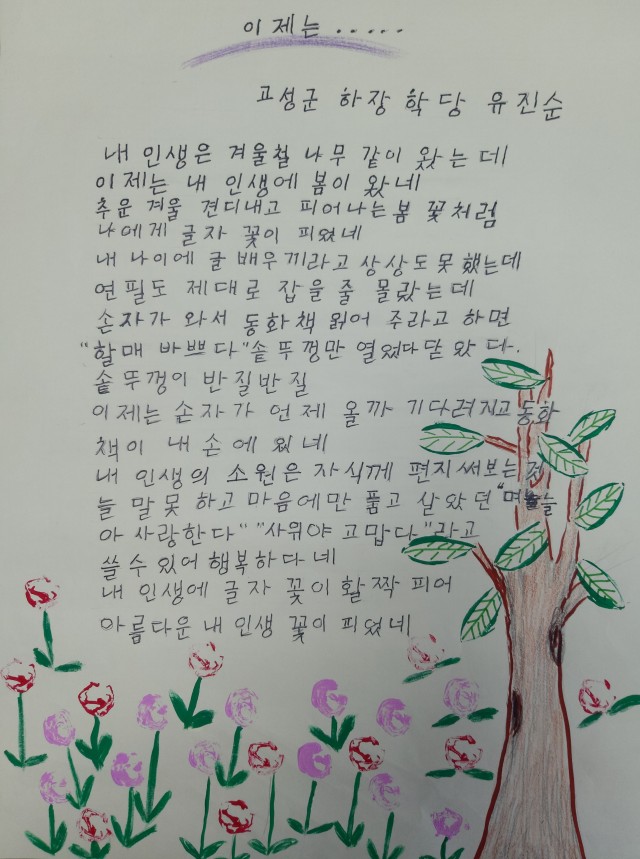 이제는 .....
고성군 하장 학당 유진순
내 인생은 겨울철 나무 같이 왔는데
이제는 내 인생에 봄이 왔네
추운 겨울 견디내고 피어나는 봄 꽃처럼
나에게 글자 꽃이 피였네
내 나이에 글 배우끼라고 상상도 못했는데
연필도 제대로 잡을 줄 몰랐는데
손자가 와서 동화책 읽어 주라고 하면
“할매 바쁘다” 솥뚜껑만 열었다 닫았다.
솥뚜껑이 반질반질
이제는 손자가 언제 올까 기다려지고 동화
책이 내 손에 있네
내 인생의 소원은 자식께 편지써보는 것
늘 말못 하고 마음에만 품고 살았던 “며늘
아 사랑한다“ ”사위야 고맙다”라고
쓸 수 있어 행복하다네
내 인생에 글자 꽃이 활짝 피어
아름다운 내 인생 꽃이 피었네